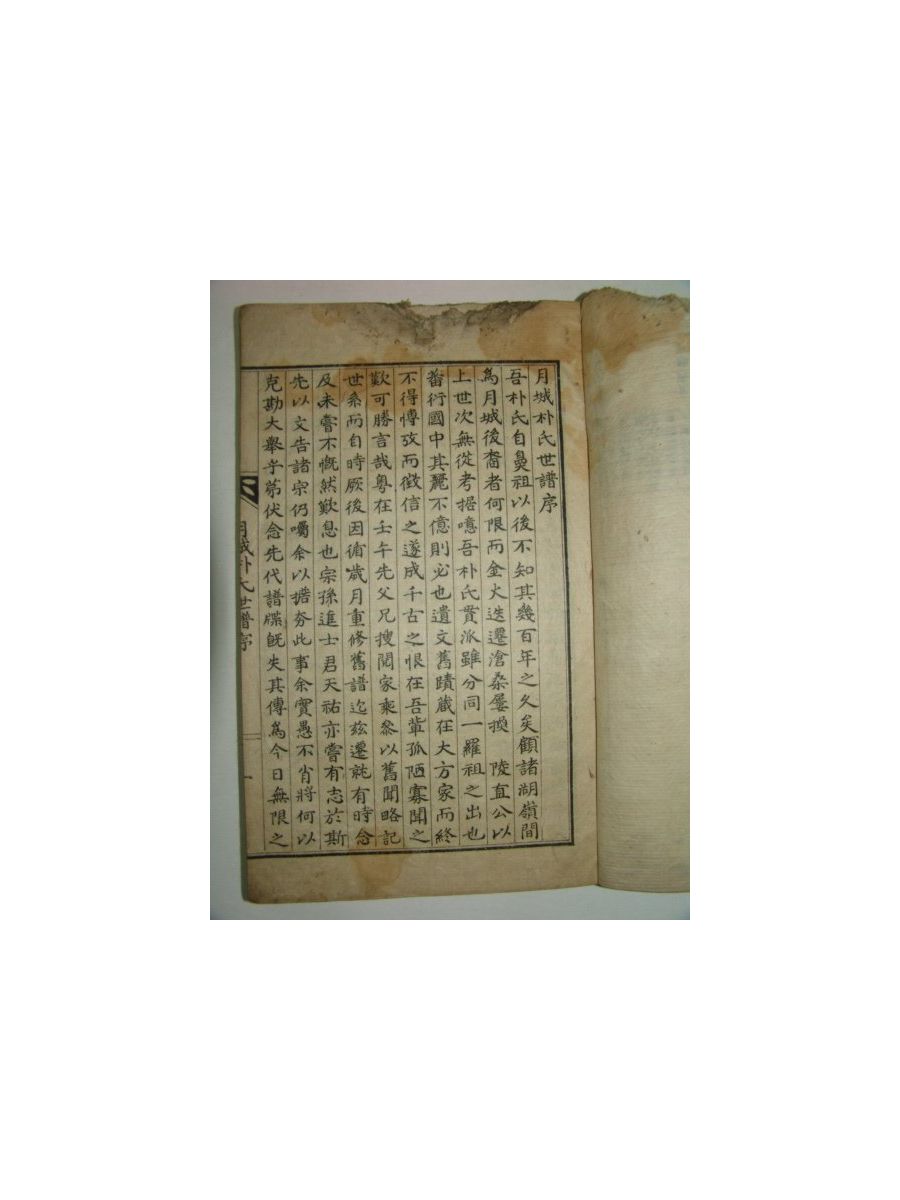 月城朴氏世譜序
吾朴氏自鼻祖以後不知其幾百年之久矣顧諸湖嶺間
為月城後裔者何限而金火迭遷滄桑屢換 陵直公以
上世次無從考据噫吾朴氏貫派雖分同一羅祖之出也
蕃衍國中其麗不億則必也遺文舊蹟藏在大方家而終
不得愽攷而徵信之遂成千古之恨在吾輩孤陋寡聞之
歎可勝言哉粵在壬午先父兄搜閱家乘參以舊聞略記
世系而自時厥後因循歲月重修舊譜迄玆遷就有時念
及未嘗不慨然歎息也宗孫進士君天祐亦嘗有志於斯
先以文告諸宗仍囑余以撘夯此事余實愚不肖將何以
克勘大舉乎第伏念先代譜牒旣失其傳為今日無限之
月城朴氏世譜序
一